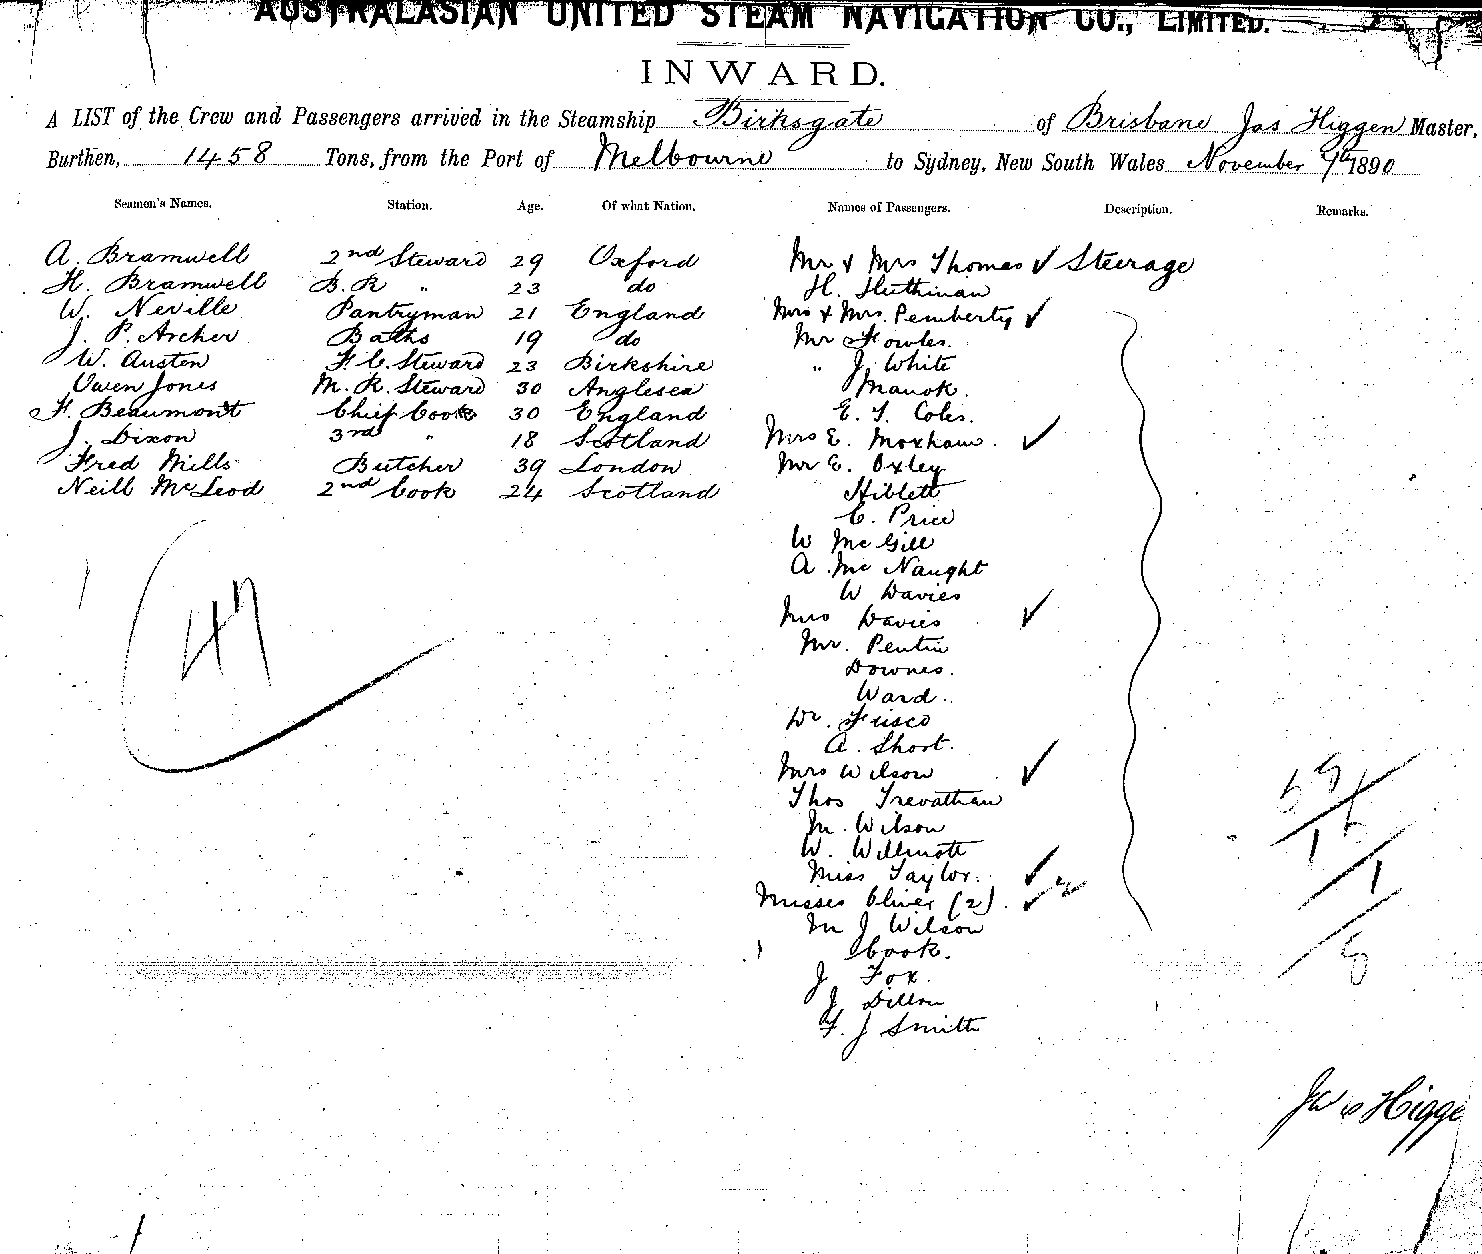 AUSTRALASIAN UNITED STEAM NAVIGATION CO., LIMITED.
INWARD.
A LIST of the Crew and Passengers arrived in the Steamship Birksgate of Brisbane Jas Higgen Master,
Burthen, 1458 Tons, from the Port of Melbourne to Sydney, New South Wales November 7th 1890
Seamen's Names. Station. Age. Of what Nation. Names of Passengers. Description. Remarks.
A. Bramwell 2nd Steward 29 Oxford Mr & Mrs Thomas ✓ Steerage
H. Bramwell B.R " 23 do H.
W. Neville Pantryman 21 England Mrs & Mrs. Pemberty ✓
J. P. Archer Baths 19 do Mr Fowles.
W. Austen F.C. Steward 23 Birkshire " J. White
Owen Jones M. R. Steward 30 Anglesea Manok.
F. Beaumont Chief Cook 30 England E. T. Coles.
J. Dixon 3rd " 18 Scotland Mrs E. Moxham. ✓
Fred Mills 39 Butcher London Mr E. Oxley
Neill McLeod 2nd Cook 24 Scotland Hiblett
C. Price
W McGill
A. McNaught
W Davies
Mrs Davies ✓
Mr. Pentin
Downes.
Ward.
Dr. Frisco
A. Short.
Mrs Wilson ✓
Thos Trevathan
M. Wilson
W. Willmott
Miss Taylor. ✓
Misses Oliver (2). ✓ 2
M J Wilson
Cook.
J Fox.
J Dillon
F. J Smith
47
1
1
8
Jas Higge